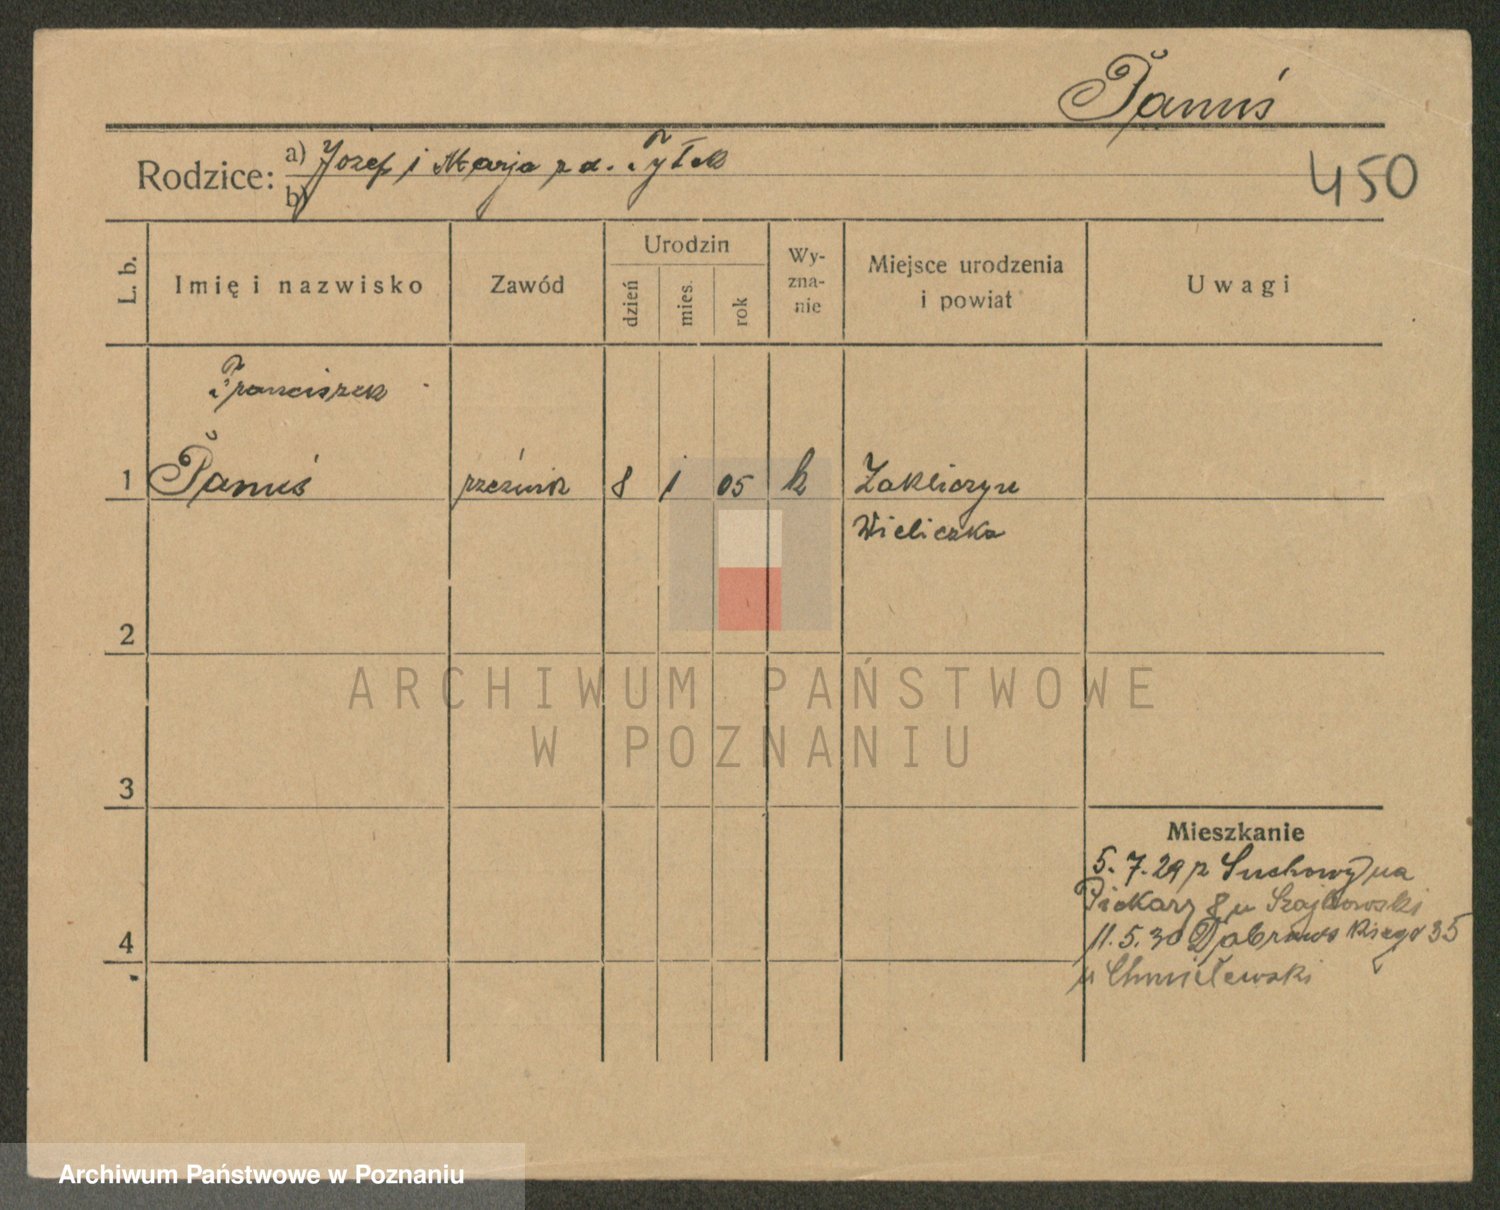 Panuś
Rodzice: a) Jozef i Marja z d. Tyłek
b)
450
L. b.
Imię i nazwisko
Zawód
Urodzin
dzień
mies.
rok
Wy-
zna-
nie
Miejsce urodzenia
i powiat
Uwagi
Franciszek
1 Panuś rzeźnik 8 1 05 k Zakliczyn
Wieliczka
2
ARCHIWUM PAŃSTWOWE
W POZNANIU
3
Mieszkanie
5.7.29 z Suchowy na
Piekary 8 u Szajkowski
4
11.5.30 Dąbrowskiego 35
u Chmielewski
Archiwum Państwowe w Poznaniu